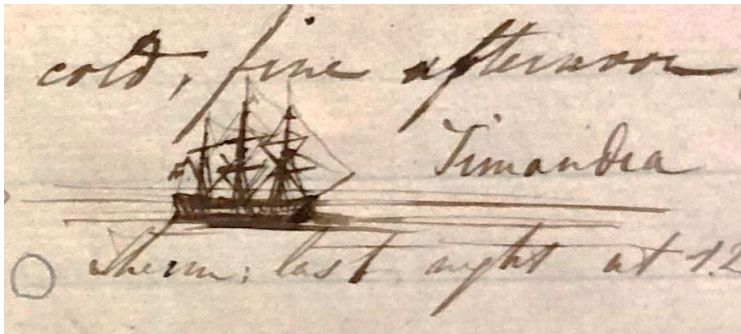 cold, fine afternoon
Timandra
Therm: last night at 12